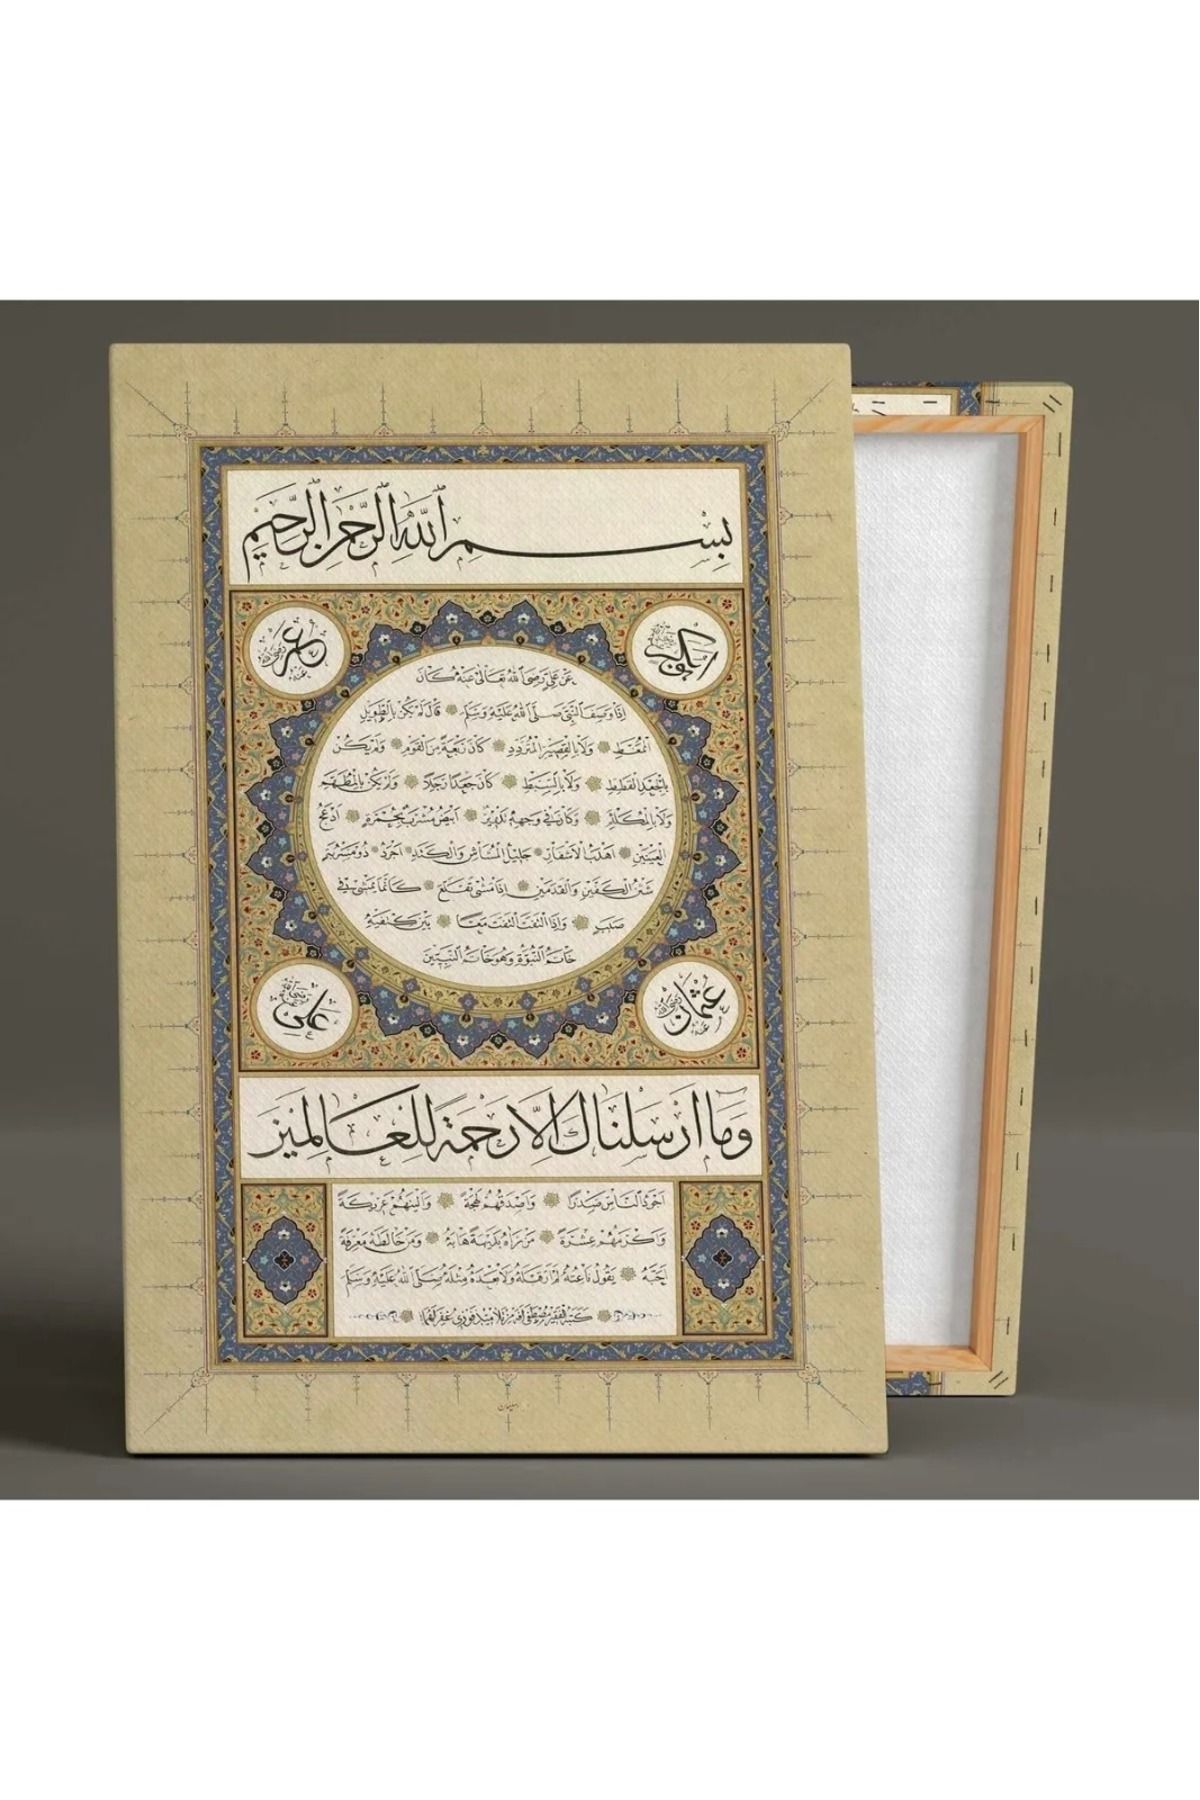 بِسْمِ ٱللّٰهِ ٱلرَّحْمٰنِ ٱلرَّحِيمِ
أبو بكر رضي الله عنه
عمر رضي الله عنه
عَنْ عَلِيٍّ رَضِيَ اللهُ تَعَالَى عَنْهُ كَانَ
إِذَا وَصَفَ النَّبِيَّ صَلَّى اللهُ عَلَيْهِ وَسَلَّمَ قَالَ لَمْ يَكُنْ بِالطَّوِيلِ
الْمُمَّغِطِ وَلَا بِالْقَصِيرِ الْمُتَرَدِّدِ كَانَ رَبْعَةً مِنَ الْقَوْمِ وَلَمْ يَكُنْ
بِالْجَعْدِ الْقَطَطِ وَلَا بِالسَّبِطِ كَانَ جَعْدًا رَجِلًا وَلَمْ يَكُنْ بِالْمُطَهَّمِ
وَلَا بِالْمُكَلْثَمِ وَكَانَ فِي وَجْهِهِ تَدْوِيرٌ أَبْيَضُ مُشْرَبٌ بِحُمْرَةٍ أَدْعَجُ
الْعَيْنَيْنِ أَهْدَبُ الْأَشْفَارِ جَلِيلُ الْمُشَاشِ وَالْكَتَدِ أَجْرَدُ ذُو مَسْرُبَةٍ
شَثْنُ الْكَفَّيْنِ وَالْقَدَمَيْنِ إِذَا مَشَى تَقَلَّعَ كَأَنَّمَا يَمْشِي فِي
صَبَبٍ وَإِذَا الْتَفَتَ الْتَفَتَ مَعًا بَيْنَ كَتِفَيْهِ
خَاتَمُ النُّبُوَّةِ وَهُوَ خَاتَمُ النَّبِيِّينَ
عثمان رضي الله عنه
علي رضي الله عنه
وَمَا أَرْسَلْنَاكَ إِلَّا رَحْمَةً لِلْعَالَمِينَ
أَجْوَدُ النَّاسِ صَدْرًا وَأَصْدَقُهُمْ لَهْجَةً وَأَلْيَنُهُمْ عَرِيكَةً
وَأَكْرَمُهُمْ عِشْرَةً مَنْ رَآهُ بَدِيهَةً هَابَهُ وَمَنْ خَالَطَهُ مَعْرِفَةً
أَحَبَّهُ يَقُولُ نَاعِتُهُ لَمْ أَرَ قَبْلَهُ وَلَا بَعْدَهُ مِثْلَهُ صَلَّى اللهُ عَلَيْهِ وَسَلَّمَ
كتبه الفقير مصطفى من تلاميذ فوزي غفر لهما